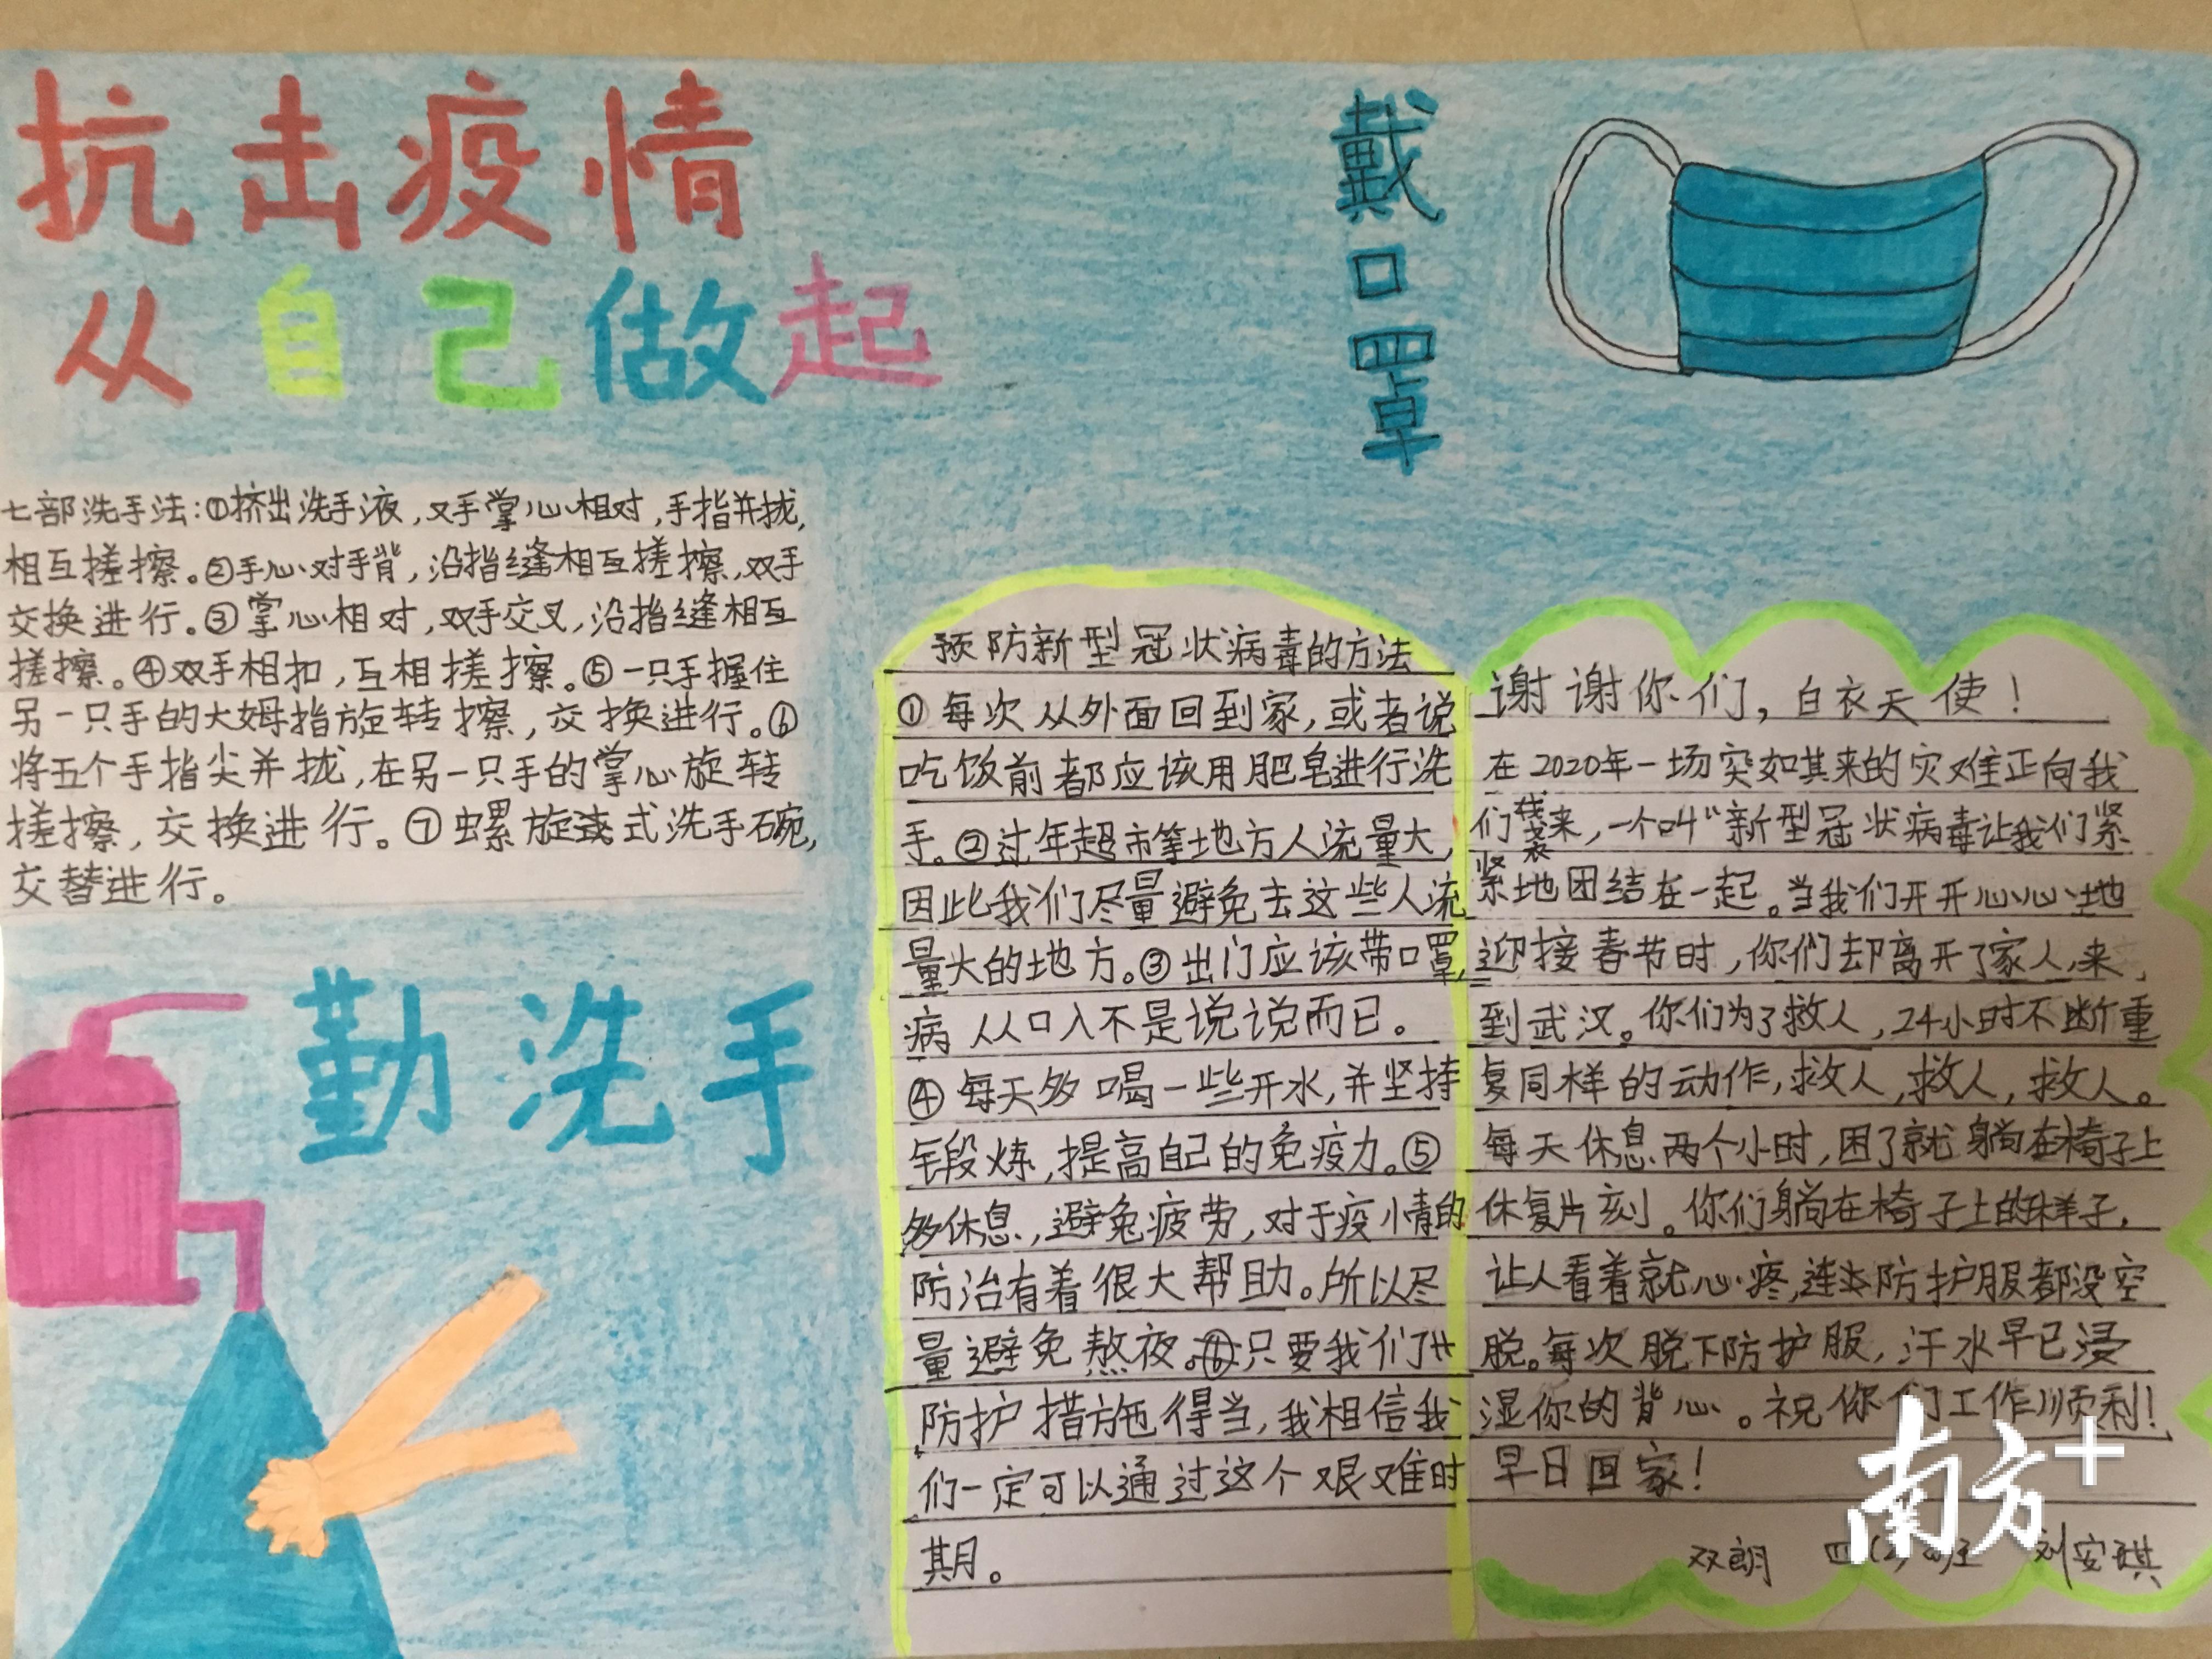 抗击疫情
从自己做起
戴口罩
七部洗手法:①挤出洗手液,双手掌心相对,手指并拢,
相互搓擦。②手心对手背,沿指缝相互搓擦,双手
交换进行。③掌心相对,双手交叉,沿指缝相互
搓擦。④双手相扣,互相搓擦。⑤一只手握住
另一只手的大姆指旋转擦,交换进行。⑥
将五个手指尖并拢,在另一只手的掌心旋转
搓擦,交换进行。⑦螺旋式洗手碗,
交替进行。
勤洗手
预防新型冠状病毒的方法
①每次从外面回到家,或者说
吃饭前都应该用肥皂进行洗
手。②过年超市等地方人流量大,
因此我们尽量避免去这些人流
量大的地方。③出门应该带口罩,
病从口入不是说说而已。
④每天多喝一些开水,并坚持
锻炼,提高自己的免疫力。⑤
多休息,避免疲劳,对于疫情的
防治有着很大帮助。所以尽
量避免熬夜。⑥只要我们
防护措施得当,我相信我
们一定可以通过这个艰难时
其月。
谢谢你们,白衣天使!
在2020年一场突如其来的灾难正向我
们袭来,一个叫“新型冠状病毒让我们紧
紧地团结在一起。当我们开开心心地
迎接春节时,你们却离开了家人,来
到武汉。你们为了救人,24小时不断重
复同样的动作,救人,救人,救人。
每天休息两个小时,困了就躺在椅子上
休复片刻。你们躺在椅子上的样子,
让人看着就心疼,连防护服都没空
脱。每次脱下防护服,汗水早已浸
湿你的背心。祝你们工作顺利!
早日回家!
双朗 四(2)班 刘安琪
南方+